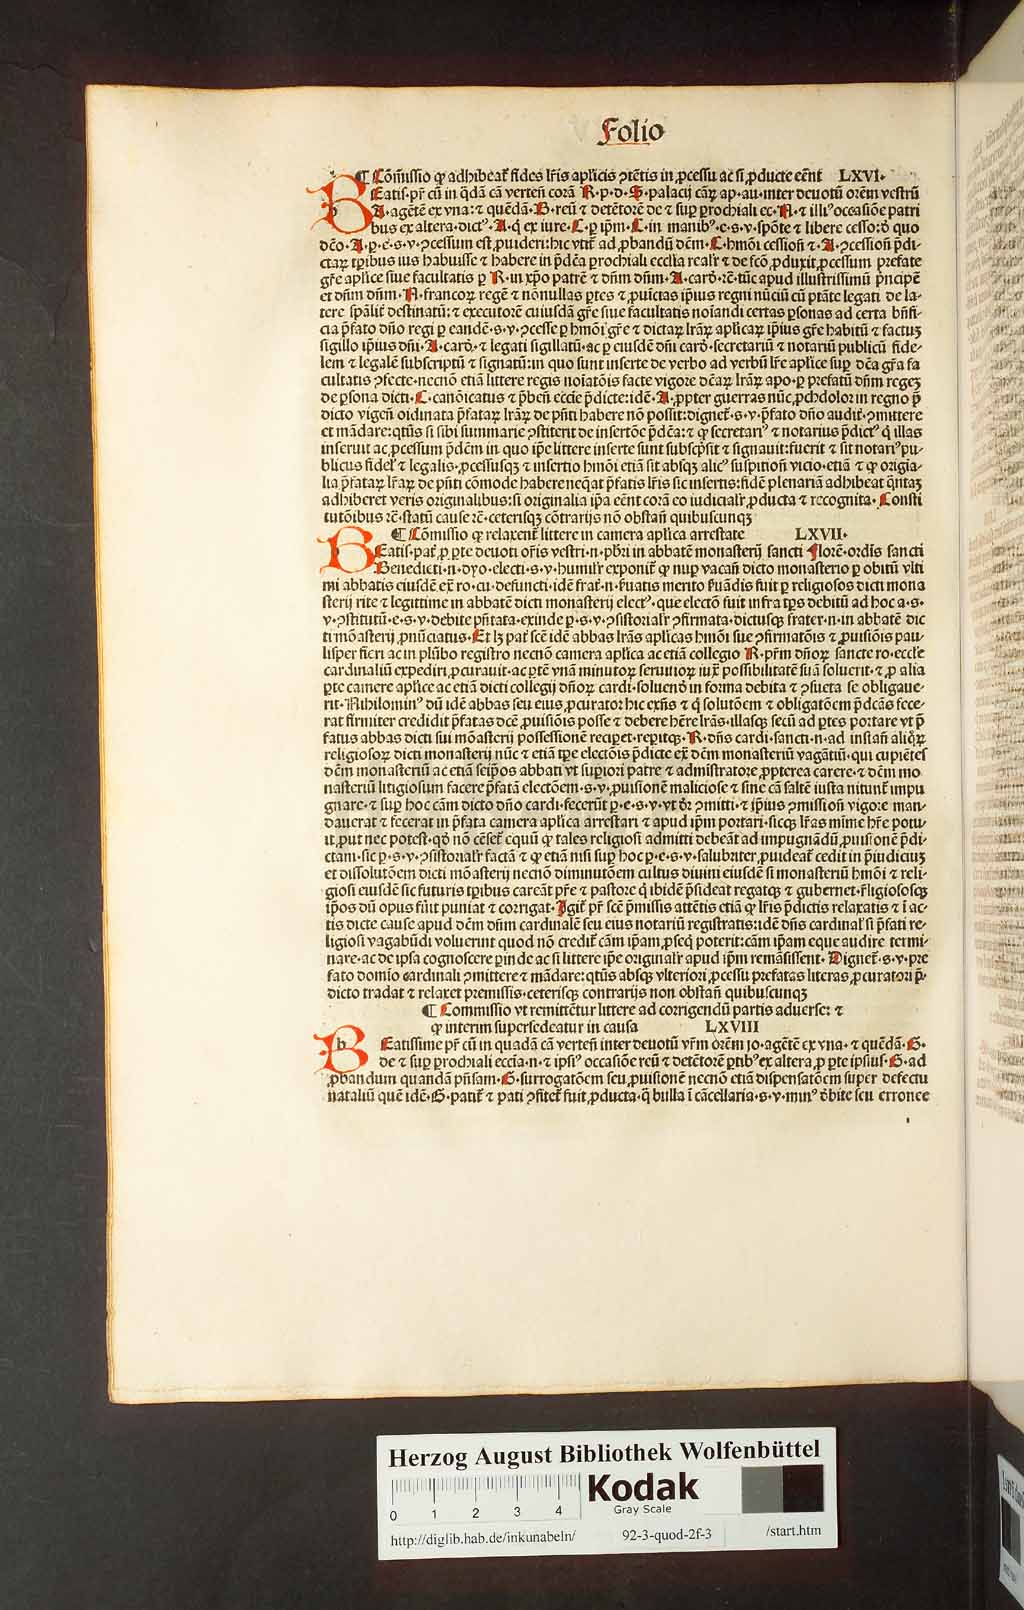 Folio
¶ Cōmissio ꝙ adhibeat᷑ fides lr̄is apl̄icis ꝯtētis in ꝓcessu ac si ꝓducte eēnt LXVI·
BEatis·pr̄ cū in q̄dā cā verteñ corā R·p·d·S·palacij cāꝝ ap·au·inter deuotū or̄em vestrū
A·agētē ex vna: ⁊ quēdā·B·reū ⁊ detētorē de ⁊ suꝑ ꝑrochiali ec·N·⁊ illiꝰ occasiōe patri
bus ex altera·dictꝰ·A·q̄ ex iure·C·ꝑ ip̄m·C·in manibꝰ·e·s·v·spōte ⁊ libere cesso: ō quo
dēo·A·ꝑ·e·s·v·ꝯcessum est ꝓuideri: hic vtit᷑ ad ꝓbandū dēm·C·hmōi cessioñ ⁊·A·ꝯcessioñ p̄di
ctaꝝ tꝑibus ius habuisse ⁊ habere in p̄dc̄a ꝑrochiali ecclia realr̄ ⁊ de fcō ꝓduxit ꝓcessum prefate
gr̄e apl̄ice siue facultatis ꝑ R·in xp̄o patrē ⁊ dn̄m dn̄m·A·cardꝰ·rē·tūc apud illustrissimū p̄ncipē
et dn̄m dn̄m·N·francoꝝ regē ⁊ nōnullas ꝑtes ⁊ ꝓuīctas ip̄ius regni nūciū cū ptāte legati de la-
tere sp̄alit᷑ destinatū: ⁊ executorē cuiusdā gr̄e siue facultatis noīandi certas ꝑsonas ad certa bn̄fi-
cia p̄fato dn̄o regi ꝑ eandē·s·v·ꝯcesse ꝑ hmōi gr̄e ⁊ dictaꝝ lr̄aꝝ aplicaꝝ ip̄ius gr̄e habitū ⁊ factuꝫ
sigillo ip̄ius dn̄i·A·cardꝰ·⁊ legati sigillatū·ac ꝑ eiusdē dn̄i cardꝰ·secretariū ⁊ notariū publicū fide-
lem ⁊ legalē subscriptū ⁊ signatū: in quo sunt inserte de verbo ad verbū lr̄e apl̄ice suꝑ dc̄a gr̄a fa
cultatis ꝯfecte·necnō etiā littere regis noīatōis facte vigore dc̄aꝝ lr̄aꝝ apo·ꝑ prefatū dn̄m regeꝫ
de ꝑsona dicti·C·canōicatus ⁊ p̄beñ eccie p̄dicte: idē·A·ꝓpter guerras nūc ꝓchdolor in regno p̄
dicto vigeñ oīdinata p̄fataꝝ lr̄aꝝ de pn̄ti habere nō possit: dignet᷑·s·v·p̄fato dn̄o audit᷑·ꝯmittere
et mādare: qtūs si sibi summarie ꝯstiterit de insertōe p̄dc̄a: ⁊ ꝙ secretariꝰ ⁊ notarius p̄dictꝰ q̄ illas
inseruit ac ꝓcessum p̄dēm in quo ip̄e littere inserte sunt subscp̄sit ⁊ signauit: fuerit ⁊ sit notariꝰ pu-
blicus fidel᷑ ⁊ legalis·ꝓcessusqꝫ ⁊ insertio hmōi etiā sit absqꝫ alicꝰ suspitioñ vicio·etiā ⁊ ꝙ origia-
lia p̄fataꝝ lr̄aꝝ de pn̄ti cōmode habere neq̄at p̄fatis lr̄is sic insertis: fidē plenariā adhibeat q̄ntaꝫ
adhiberet veris originalibus: si originalia ip̄a eēnt corā eo iudicialr̄ ꝓducta ⁊ recognita·Consti
tutōibus rē·statū cause rē·ceterisqꝫ cōtrarijs nō obstañ quibuscunqꝫ
¶ Cōmissio ꝙ relaxent᷑ littere in camera apl̄ica arrestate LXVII·
BEatis·pat᷑ ꝑ ꝑte deuoti or̄is vestri·n·pb̄ri in abbatē monasterij sancti Florē·ordīs sancti
Benedicti·n·dyo·electi·s·v·humilr̄ exponit᷑ ꝙ nuꝑ vacañ dicto monasterio ꝑ obitū vlti
mi abbatis eiusdē ex̄ ro·cu·defuncti·idē frat᷑·n·ẜuatis merito ẜuādis fuit ꝑ religiosos dicti mona
sterij rite ⁊ legittime in abbatē dicti monasterij electꝰ·que electō fuit infra tp̄s debitū ad hoc a·s·
v·ꝯstitutū·e·s·v·debite pn̄tata·exinde ꝑ·s·v·ꝯsistorialr̄ ꝯfirmata·dictusqꝫ frater·n·in abbatē dic
ti mōasterij ꝓnūciatus·Et lꝫ pat᷑ scē idē abbas lr̄as apl̄icas hmōi sue ꝯfirmatōis ⁊ ꝓuisiōis pau-
lisper fieri ac in plūbo registro necnō camera apl̄ica ac etiā collegio R·pr̄m dn̄oꝝ sancte ro·eccl̄e
cardinaliū expediri ꝓcurauit·ac ꝑtē vnā minutoꝝ seruitioꝝ iux̄ possibilitatē suā soluerit·⁊ ꝓ alia
ꝑte camere apl̄ice ac etiā dicti collegij dn̄oꝝ cardi·soluendꝰ in forma debita ⁊ ꝯsueta se obligaue-
rit·Nihilominꝰ dū idē abbas seu eius ꝓcurator hic exn̄s ⁊ q̄ solutōem ⁊ obligatōem p̄dcās fece-
rat firmiter credidit p̄fatas dcē ꝓuisiōis posse ⁊ debere hr̄e lr̄as·illasqꝫ secū ad ꝑtes portare vt p̄
fatus abbas dicti sui mōasterij possessionē recipet·reꝑitqꝫ·R·dn̄s cardi·sancti·n·ad instañ aliq̄ꝝ
religiosoꝝ dicti monasterij nūc ⁊ etiā tꝑe electōis p̄dicte ex̄ dēm monasteriū vagātiū·qui cupiētes
dēm monasteriū ac etiā seip̄os abbati vt suꝑiori patre ⁊ admīstratore ꝓpterea carere·⁊ dēm mo
nasteriū litigiosum facere p̄fatā electōem·s·v·ꝓuisionē maliciose ⁊ sine cā saltē iusta nitunt᷑ impu
gnare·⁊ suꝑ hoc cām dicto dn̄o cardi·fecerūt ꝑ·e·s·v·vt dr̄ ꝯmitti·⁊ ip̄ius ꝯmissioñ vigore man-
dauerat ⁊ fecerat in p̄fata camera apl̄ica arrestari ⁊ apud ip̄m portari·sicqꝫ lr̄as mīme hr̄e potu-
it ꝓut nec potest·qdꝰ nō cēset᷑ equū ꝙ tales religiosi admitti debeāt ad impugnādū ꝓuisionē p̄di-
ctam·sic ꝑ·s·v·ꝯsistorialr̄ factā ⁊ ꝙ etiā nisi suꝑ hoc ꝑ·e·s·v·salubriter ꝓuideat᷑ cedit in p̄iudiciuꝫ
et dissolutōem dicti mōasterij necnō diminutōem cultus diuini eiusdē si monasteriū hmōi ⁊ reli-
giosi eiusdē sic futuris tꝑibus careāt pr̄e ⁊ pastore q̄ ibidē p̄sideat regatqꝫ ⁊ gubernet·r̄ligiososqꝫ
ip̄os dū opus fūit puniat ⁊ corrigat·Igit᷑ pr̄ scē p̄missis attētis etiā ꝙ lr̄is p̄dictis relaxatis ⁊ ī ac-
tis dicte cause apud dēm dn̄m cardinalē seu eius notariū registratis: idē dn̄s cardinal᷑ si p̄fati re-
ligiosi vagabūdi voluerint quod nō credit᷑ cām ip̄am ꝓseq̄ poterit: cām ip̄am eque audire termi-
nare·ac de ipsa cognoscere ꝑinde ac si littere ip̄e originalr̄ apud ip̄m remāsissent·Dignet᷑·s·v·pre
fato domīo cardinali ꝯmittere ⁊ mādare: qtūs absqꝫ vlteriori ꝓcessu prefatas literas ꝓcuratori p̄-
dicto tradat ⁊ relaxet premissis·ceterisqꝫ contrarijs non obstañ quibuscunqꝫ
¶ Commissio vt remittētur littere ad corrigendū partis aduerse: ⁊
ꝙ interim supersedeatur in causa LXVIII
BEatissime pr̄ cū in quadā cā verteñ inter deuotū vr̄m or̄em jo·agētē ex vna·⁊ quēdā·G·
de ⁊ suꝑ ꝑrochiali eccīa·n·⁊ ipsiꝰ occasiōe reū ⁊ detētorē ꝑtibꝰ ex altera ꝓ ꝑte ipsius·G·ad
ꝓbandum quandā pn̄sam·G·surrogatōem seu ꝓuisionē necnō etiā dispensatōem super defectu
nataliū quē idē·G·patit᷑ ⁊ pati ꝯfitet᷑ fuit ꝓducta·q̄ bulla ī cācellaria·s·v·minꝰ dbite seu erronee
Herzog August Bibliothek Wolfenbüttel
0 1 2 3 4
Kodak
Gray Scale
http://diglib.hab.de/inkunabeln/ 92-3-quod-2f-3 /start.htm